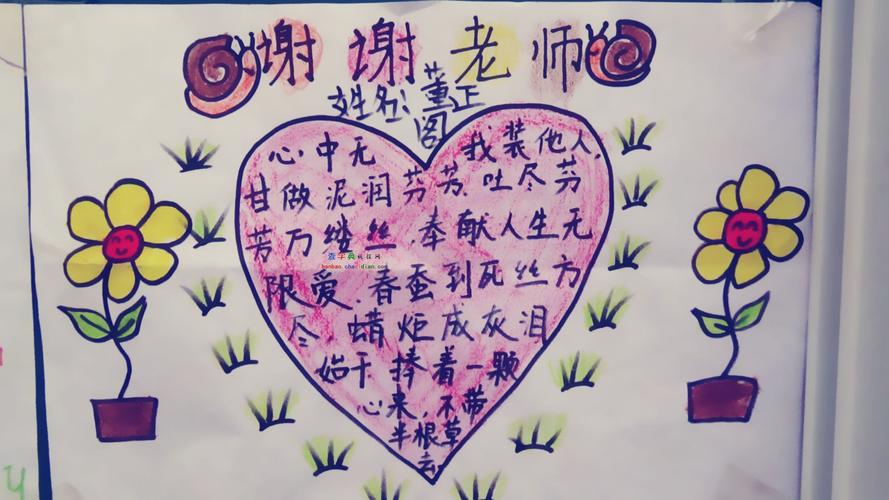 谢谢老师
姓名:董正阁
心中无 我装他人,
甘做泥润芬芳,吐尽芬
芳万缕丝,奉献人生无
限爱.春蚕到死丝方
尽.蜡炬成灰泪
始干捧着一颗
心来,不带
半根草
去
查字典手抄报网
banbao.chazidian.com